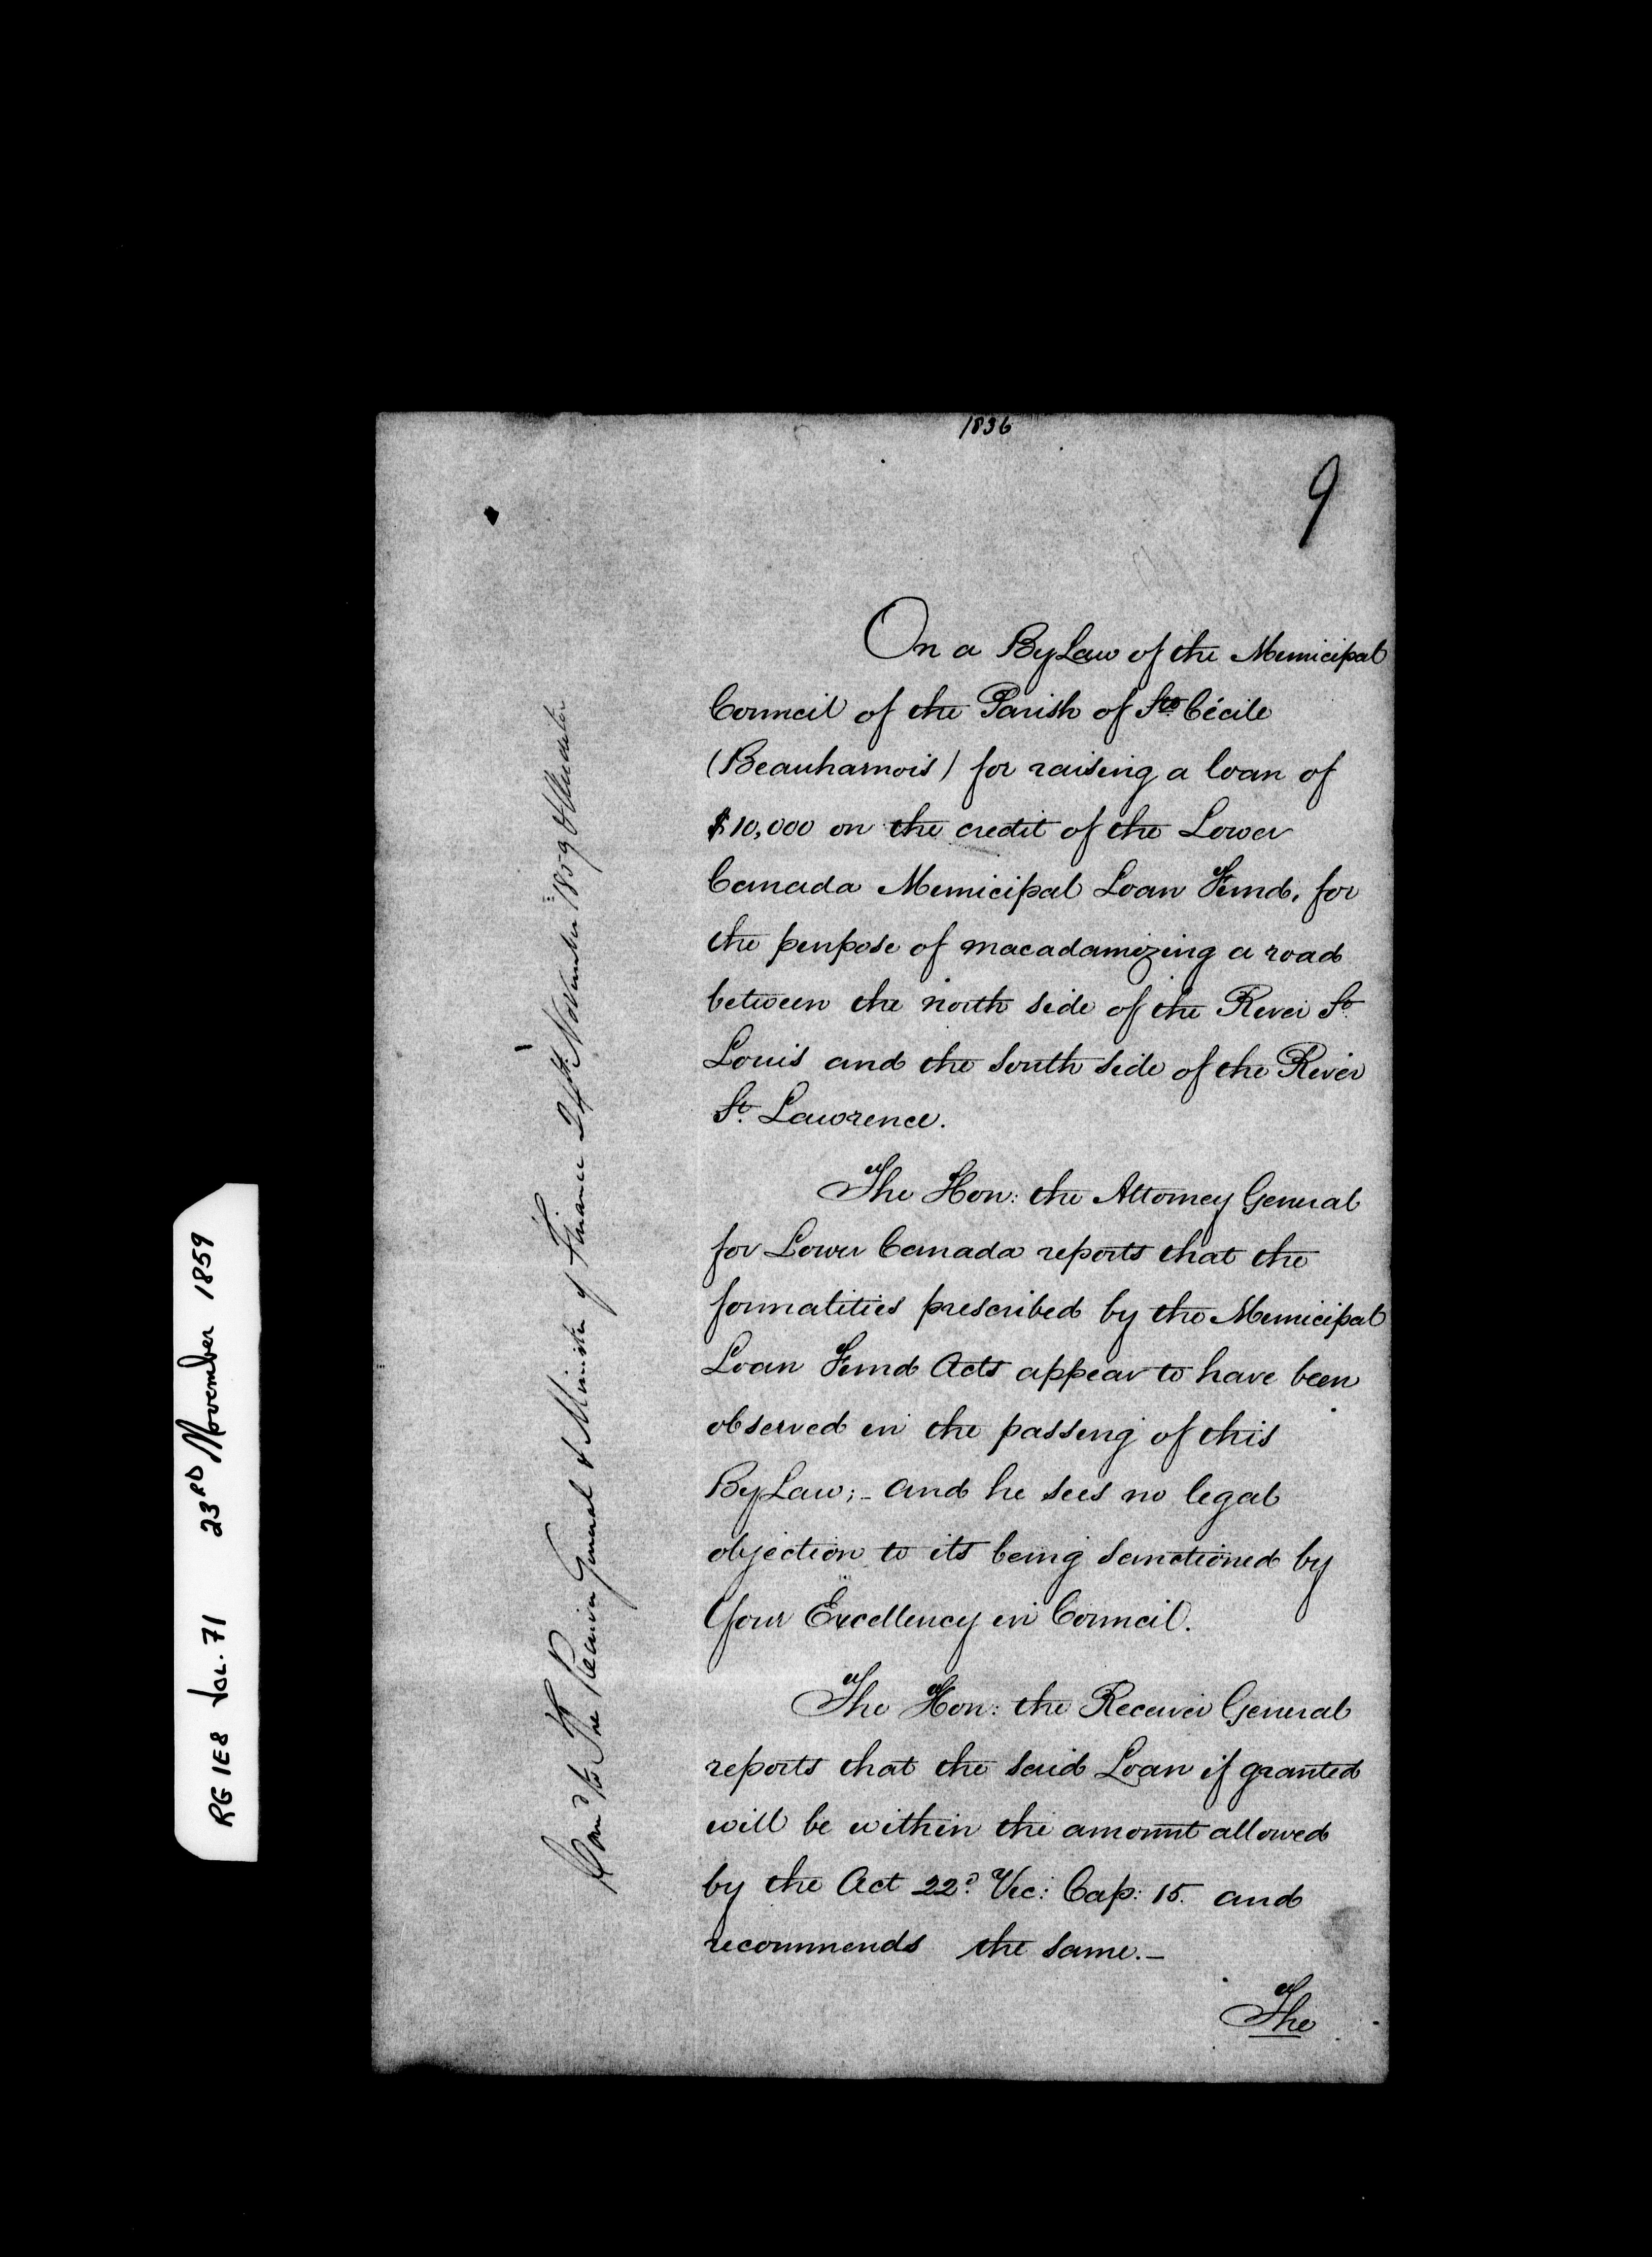 1836
9
On a ByLaw of the Municipal
Council of the Parish of Ste. Cécile
(Beauharnois) for raising a loan of
$10,000 on the credit of the Lower
Canada Municipal Loan Fund, for
the purpose of macadamizing a road
between the north side of the River St.
Louis and the south side of the River
St. Lawrence.
The Hon: the Attorney General
for Lower Canada reports that the
formalities prescribed by the Municipal
Loan Fund Acts appear to have been
observed in the passing of this
ByLaw;- and he sees no legal
objection to its being sanctioned by
Your Excellency in Council.
The Hon: the Receiver General
reports that the said Loan if granted
will be within the amount allowed
by the Act 22d. Vic: Cap: 15. and
recommends the same.-
The
Comd. to The Receiver General & Minister of Finance 24th. November 1859
RG 1E8 Vol. 71 23RD November 1859